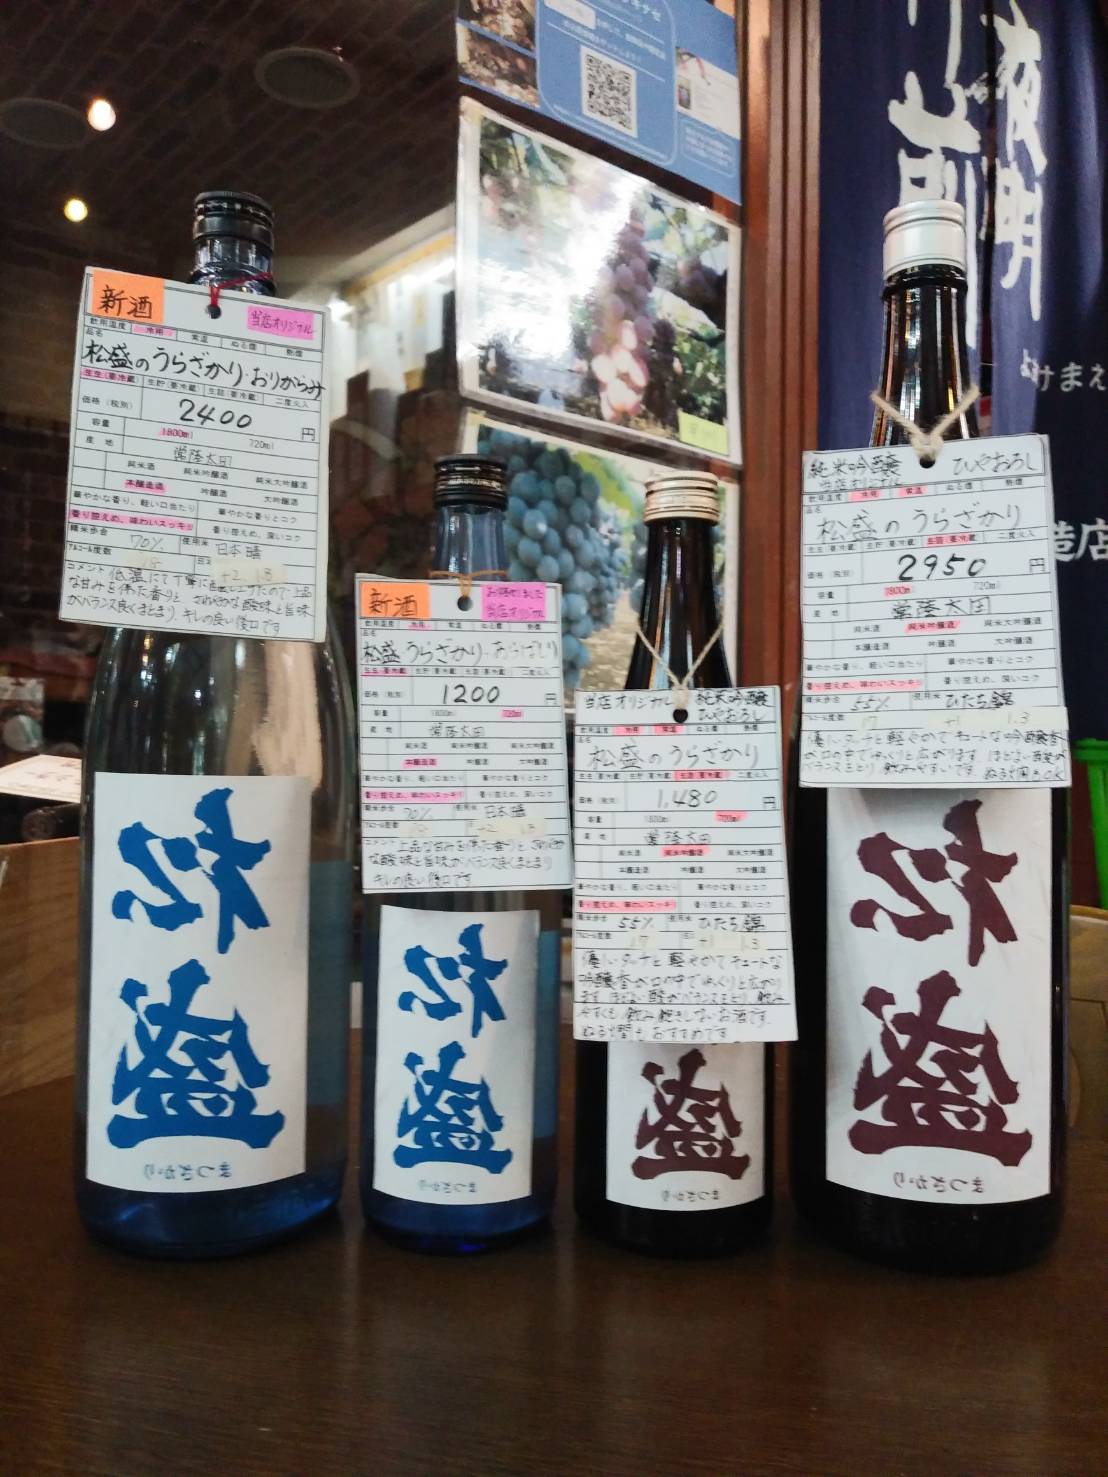 新酒
当店オリジナル
飲用温度 冷用 常温 ぬる燗 熱燗
品名
松盛のうらざかり・おりがらみ
生生(要冷蔵) 生貯(要冷蔵) 生詰(要冷蔵) 二度火入
価格(税別) 2400 円
容量 1800ml 720ml
産地 常陸太田
純米酒 純米吟醸酒 純米大吟醸酒
本醸造酒 吟醸酒 大吟醸酒
華やかな香り、軽い口当たり 華やかな香りとコク
香り控えめ、味わいスッキリ 香り控えめ、深いコク
精米歩合 70% 使用米 日本晴
アルコール度数 +2 1.3
コメント 低温にて丁寧に
な甘みを伴た香りと さわやかな酸味と旨味
がバランス良くまとまり、キレの良い後口です
新酒
お待たせしました
当店オリジナル
品名
松盛 うらざかり・あらばしり
価格(税別) 1200 円
容量 1800ml 720ml
産地 常陸太田
純米酒 純米吟醸酒 純米大吟醸酒
本醸造酒 吟醸酒 大吟醸酒
華やかな香り、軽い口当たり 華やかな香りとコク
香り控えめ、味わいスッキリ 香り控えめ、深いコク
精米歩合 70% 使用米 日本晴
アルコール度数 +2 1.3
コメント 上品な甘みを伴た香りと さわやか
な酸味と旨味がバランス良くまとまり
キレの良い後口です
当店オリジナル 純米吟醸
ひやおろし
品名
松盛のうらざかり
価格(税別) 1,480 円
容量 1800ml 720ml
産地 常陸太田
純米酒 純米吟醸酒 純米大吟醸酒
本醸造酒 吟醸酒 大吟醸酒
華やかな香り、軽い口当たり 華やかな香りとコク
香り控えめ、味わいスッキリ 香り控えめ、深いコク
精米歩合 55% 使用米 ひたち錦
アルコール度数 17 +1 1.3
優しいタッチと軽やかでキュートな
吟醸香が口の中でゆっくりと広がり
ます ほどよい酸がバランスをとり、飲み
やすくも飲み飽きしないお酒です。
ぬる燗もおすすめです
純米吟醸 ひやおろし
当店オリジナル
飲用温度 冷用 常温 ぬる燗 熱燗
品名
松盛の うらざかり
生生(要冷蔵) 生貯(要冷蔵) 生詰(要冷蔵) 二度火入
価格(税別) 2950 円
容量 1800ml 720ml
産地 常陸太田
純米酒 純米吟醸酒 純米大吟醸酒
本醸造酒 吟醸酒 大吟醸酒
華やかな香り、軽い口当たり 華やかな香りとコク
香り控えめ、味わいスッキリ 香り控えめ、深いコク
精米歩合 55% 使用米 ひたち錦
アルコール度数 17 +1 1.3
優しいタッチと軽やかでキュートな吟醸香
が口の中でゆっくりと広がります ほどよい酸が
バランスをとり 飲みやすいです。ぬる燗もOK
松盛
まつざかり
松盛
まつざかり
盛
まつざかり
松盛
まつざかり
夜明
前
よあけまえ
造店